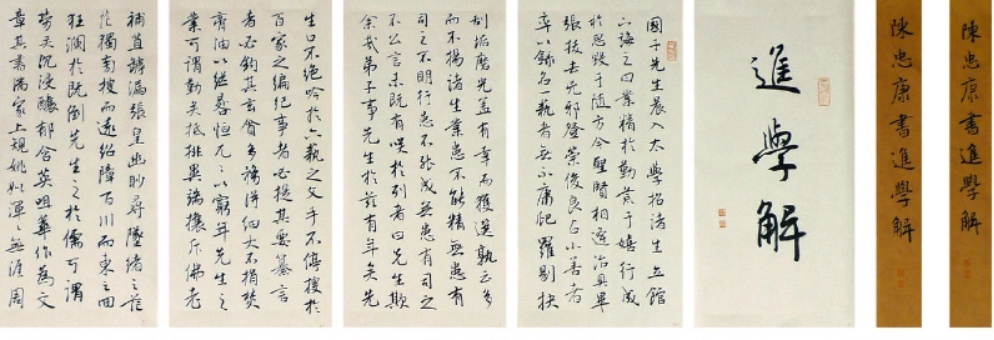 陳忠康書進學解
陳忠康書進學解
進學解
國子先生晨入太學招諸生立館
下誨之曰業精於勤荒于嬉行成
於思毀于隨方今聖賢相逢治具畢
張拔去兇邪登崇俊良占小善者
率以錄名一藝者無不庸爬羅剔抉
刮垢磨光蓋有幸而獲選孰云多
而不揚諸生業患不能精無患有
司之不明行患不能成無患有司之
不公言未既有咲於列者曰先生欺
余哉弟子事先生於茲有年矣先
生口不絕吟於六藝之文手不停披於
百家之編紀事者必提其要纂言
者必鉤其玄貪多務得細大不捐焚
膏油以繼晷恒兀〻以窮年先生之
業可謂勤矣抵排異端攘斥佛老
補苴罅漏張皇幽眇尋墜緒之茫
茫獨旁搜而遠紹障百川而東之回
狂瀾於既倒先生之於儒可謂
勞矣沉浸醲郁含英咀華作為文
章其書滿家上規姚姒渾〻無涯周